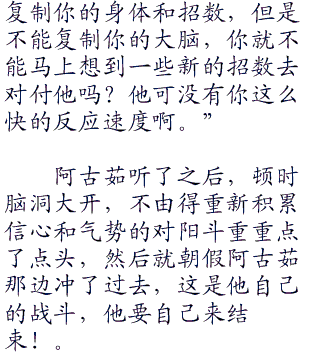 复制你的身体和招数，但是
不能复制你的大脑，你就不
能马上想到一些新的招数去
对付他吗？他可没有你这么
快的反应速度啊。”
阿古茹听了之后，顿时
脑洞大开，不由得重新积累
信心和气势的对阳斗重重点
了点头，然后就朝假阿古茹
那边冲了过去，这是他自己
的战斗，他要自己来结
束！。